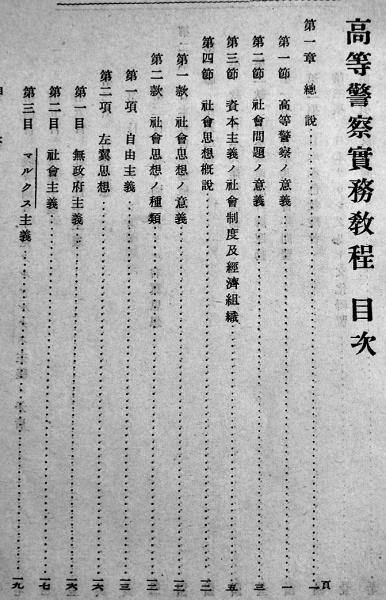 高等警察實務敎程 目次
頁
第一章 總說……一
第一節 高等警察ノ意義……一
第二節 社會問題ノ意義……三
第三節 資本主義ノ社會制度及經濟組織……五
第四節 社會思想槪說……一二
第一款 社會思想ノ意義……一二
第二款 社會思想ノ種類……一三
第一項 自由主義……一三
第二項 左翼思想……一六
第一目 無政府主義……一六
第二目 社會主義……一七
第三目 マルクス主義……一九